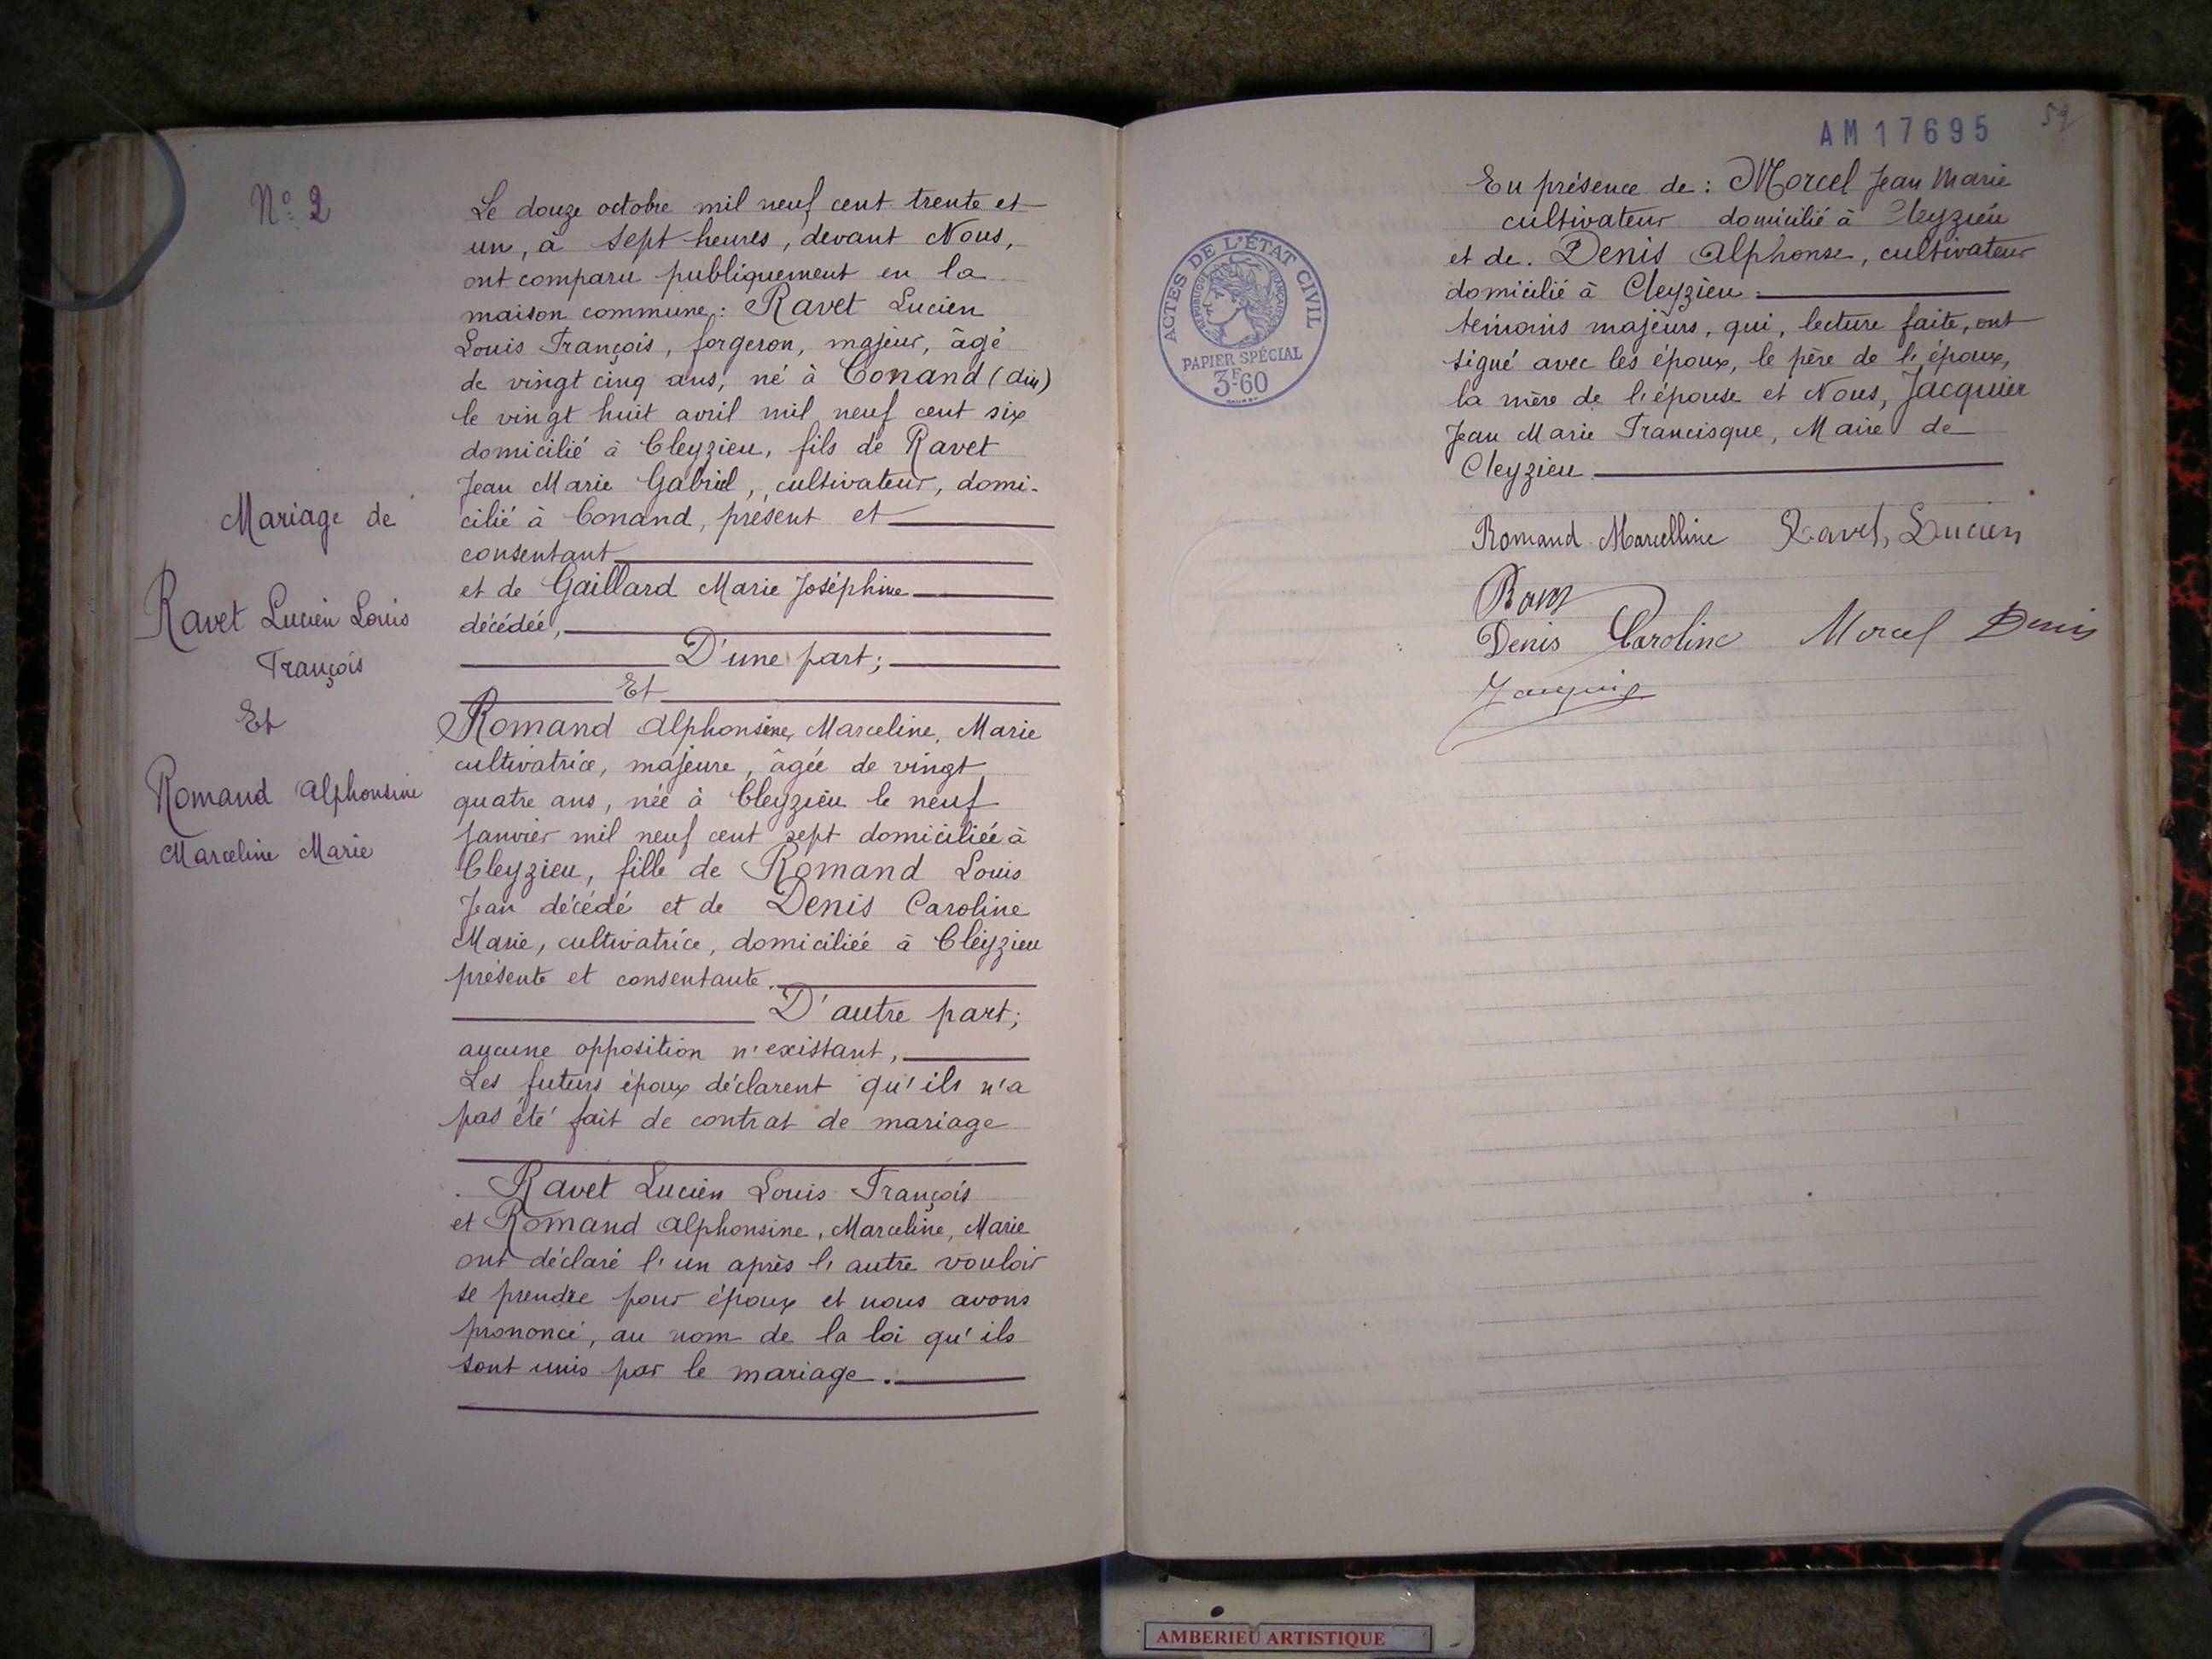 N° 2
Mariage de
Ravet Lucien Louis
François
Et
Romand Alphonsine
Marceline Marie
Le douze octobre mil neuf cent trente et
un, à sept heures, devant Nous,
ont comparu publiquement en la
maison commune : Ravet Lucien
Louis François, forgeron, majeur, âgé
de vingt cinq ans, né à Conand (Ain)
le vingt huit avril mil neuf cent six
domicilié à Cleyzieu, fils de Ravet
Jean Marie Gabriel, cultivateur, domi-
cilié à Conand, présent et
consentant
et de Gaillard Marie Joséphine
décédée,
D'une part;
Et
Romand Alphonsine, Marceline, Marie
cultivatrice, majeure, âgée de vingt
quatre ans, née à Cleyzieu le neuf
janvier mil neuf cent sept domiciliée à
Cleyzieu, fille de Romand Louis
Jean décédé et de Denis Caroline
Marie, cultivatrice, domiciliée à Cleyzieu
présente et consentante.
D'autre part;
aucune opposition n'existant,
Les futurs époux déclarent qu'ils n'a
pas été fait de contrat de mariage
Ravet Lucien Louis François
et Romand Alphonsine, Marceline, Marie
ont déclaré l'un après l'autre vouloir
se prendre pour époux et nous avons
prononcé, au nom de la loi qu'ils
sont unis par le mariage.
AM17695
59
ACTES DE L'ÉTAT CIVIL
RÉPUBLIQUE FRANÇAISE
PAPIER SPÉCIAL
3F60
En présence de : Morcel Jean Marie
cultivateur domicilié à Cleyzieu
et de. Denis Alphonse, cultivateur
domicilié à Cleyzieu
témoins majeurs, qui, lecture faite, ont
signé avec les époux, le père de l'époux,
la mère de l'épouse et Nous, Jacquier
Jean Marie Francisque, Maire de
Cleyzieu
Romand Marcelline Ravet, Lucien
Denis Caroline Morcel Denis
AMBERIEU ARTISTIQUE